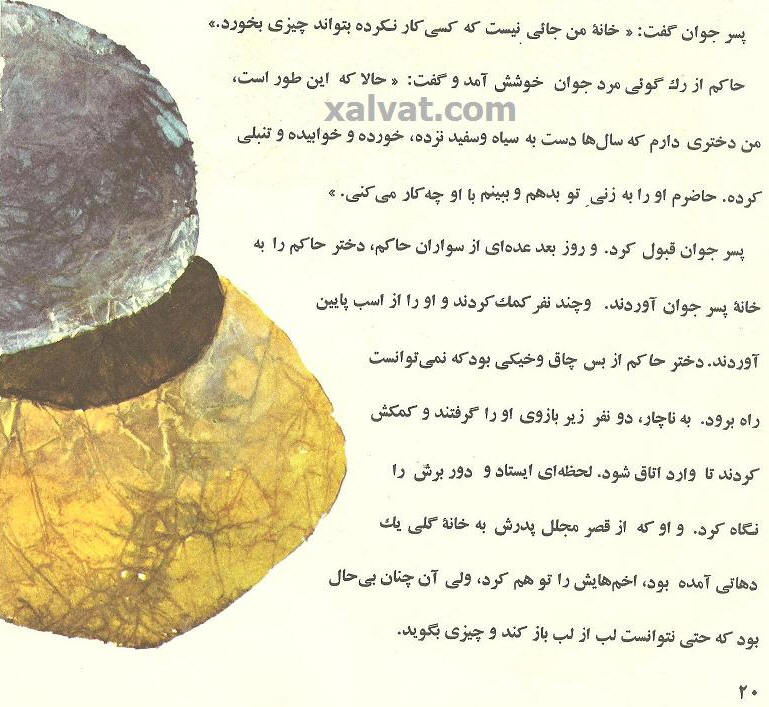 پسر جوان گفت: « خانهٔ من جائی نیست که کسی کار نکرده بتواند چیزی بخورد.»
حاکم از رك گوئی مرد جوان خوشش آمد و گفت: « حالا که این طور است،
xalvat.com
من دختری دارم که سال‌ها دست به سیاه وسفید نزده، خورده و خوابیده و تنبلی
کرده. حاضرم او را به زنیِ تو بدهم و ببینم با او چه‌کار می‌کنی. »
پسر جوان قبول کرد. و روز بعد عده‌ای از سواران حاکم، دختر حاکم را به
خانهٔ پسر جوان آوردند. وچند نفر کمك کردند و او را از اسب پایین
آوردند. دختر حاکم از بس چاق وخیکی بود که نمی‌توانست
راه برود. به ناچار، دو نفر زیر بازوی او را گرفتند و کمکش
کردند تا وارد اتاق شود. لحظه‌ای ایستاد و دور برش را
نگاه کرد. و او که از قصر مجلل پدرش به خانهٔ گلی یك
دهاتی آمده بود، اخم‌هایش را تو هم کرد، ولی آن چنان بی‌حال
بود که حتی نتوانست لب از لب باز کند و چیزی بگوید.
۲۰